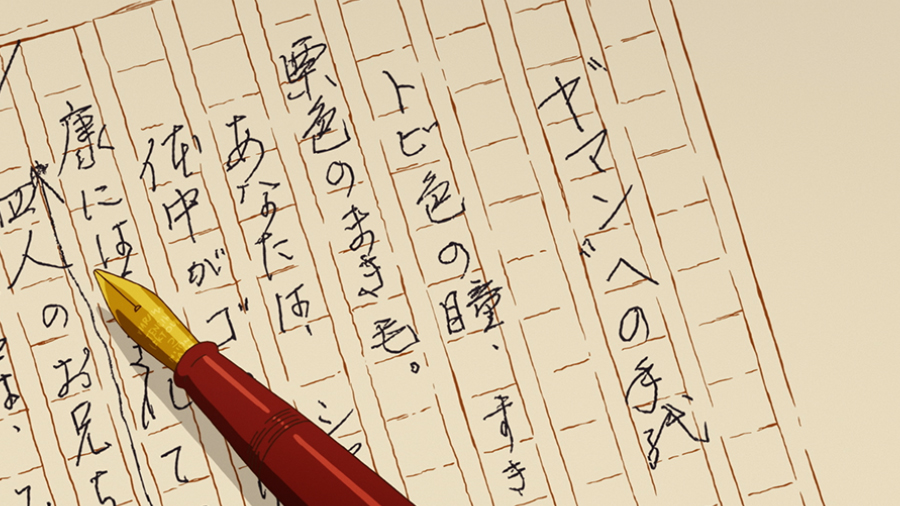 ヤ゛マン゛への手紙
トビ色の瞳、すき
栗色のまき毛。
あなたは、シ
体中がゴ
れて
康には
四人のお兄ち
は、